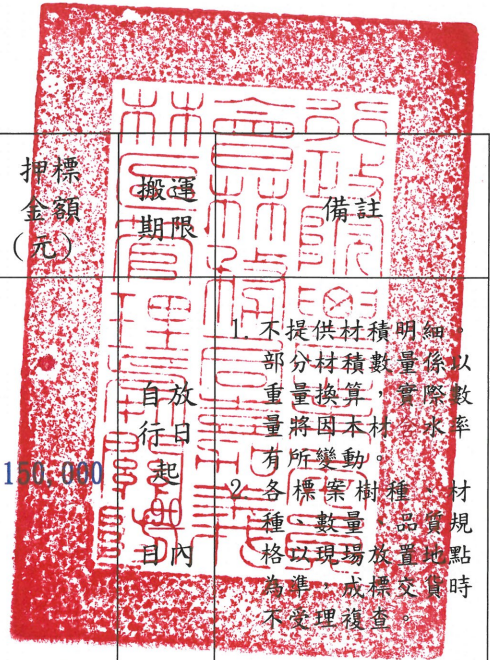 押標
金額
(元)
搬運
期限
備註
150,000
自放
行日
起
日內
1. 不提供材積明細。
部分材積數量係以
重量換算，實際數
量將因木材含水率
有所變動。
2. 各標案樹種、材
種、數量、品質規
格以現場放置地點
為準，成標交貨時
不受理複查。
行政院農業委員
會林務局嘉義
林區管理處